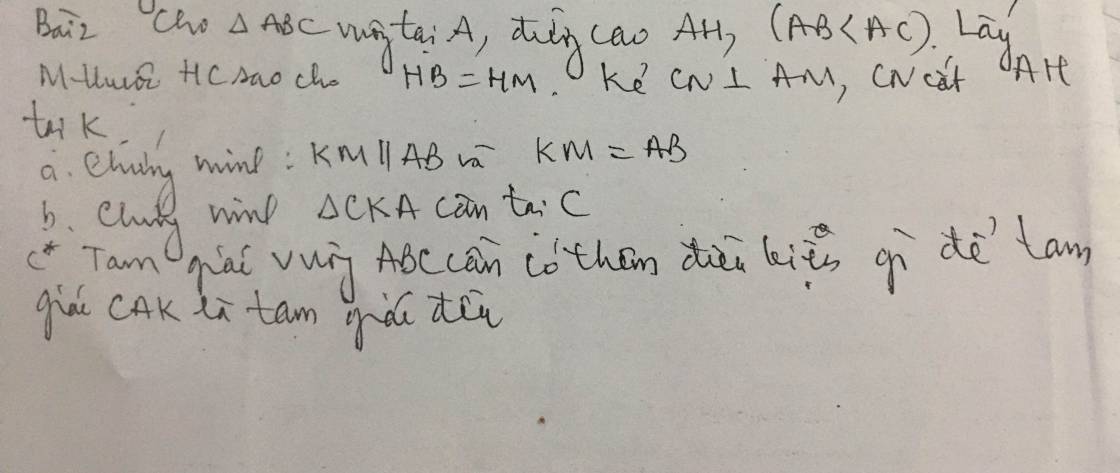 Bài 2 Cho Δ ABC vuông tại A, đường cao AH, (AB < AC). Lấy
M thuộc HC sao cho HB = HM. Kẻ CN ⊥ AM, CN cắt AH
tại K.
a. Chứng minh : KM || AB và KM = AB
b. Chứng minh ΔCKA cân tại C
c* Tam giác vuông ABC cần có thêm điều kiện gì để tam
giác CAK là tam giác đều